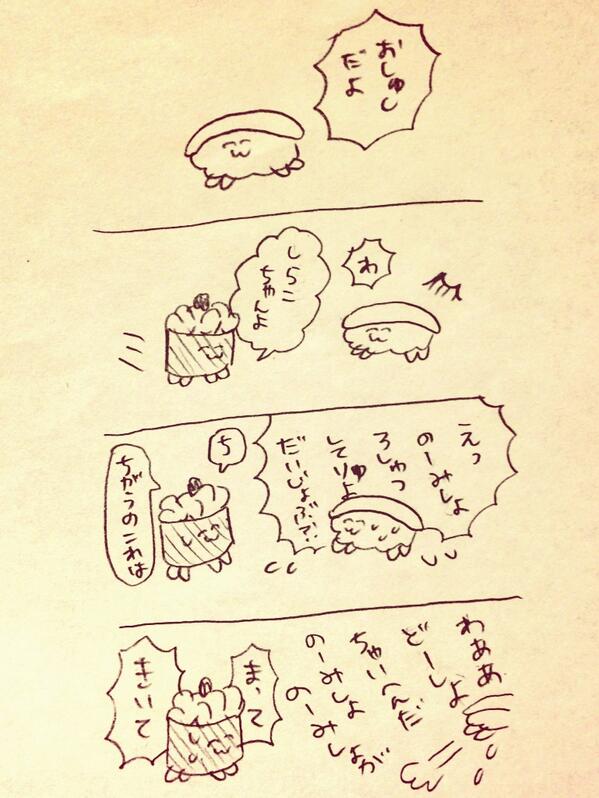 おしゅし
だよ
わ
しらこ
ちゃんよ
えっ
のーみしょ
ろしゅつ
してりゅよ
だいじょぶ?
ち
ちがうのこれは
わああ
どーしよ
ちゃいへんだ
のーみしょ
のーみしょが
まって
きいて